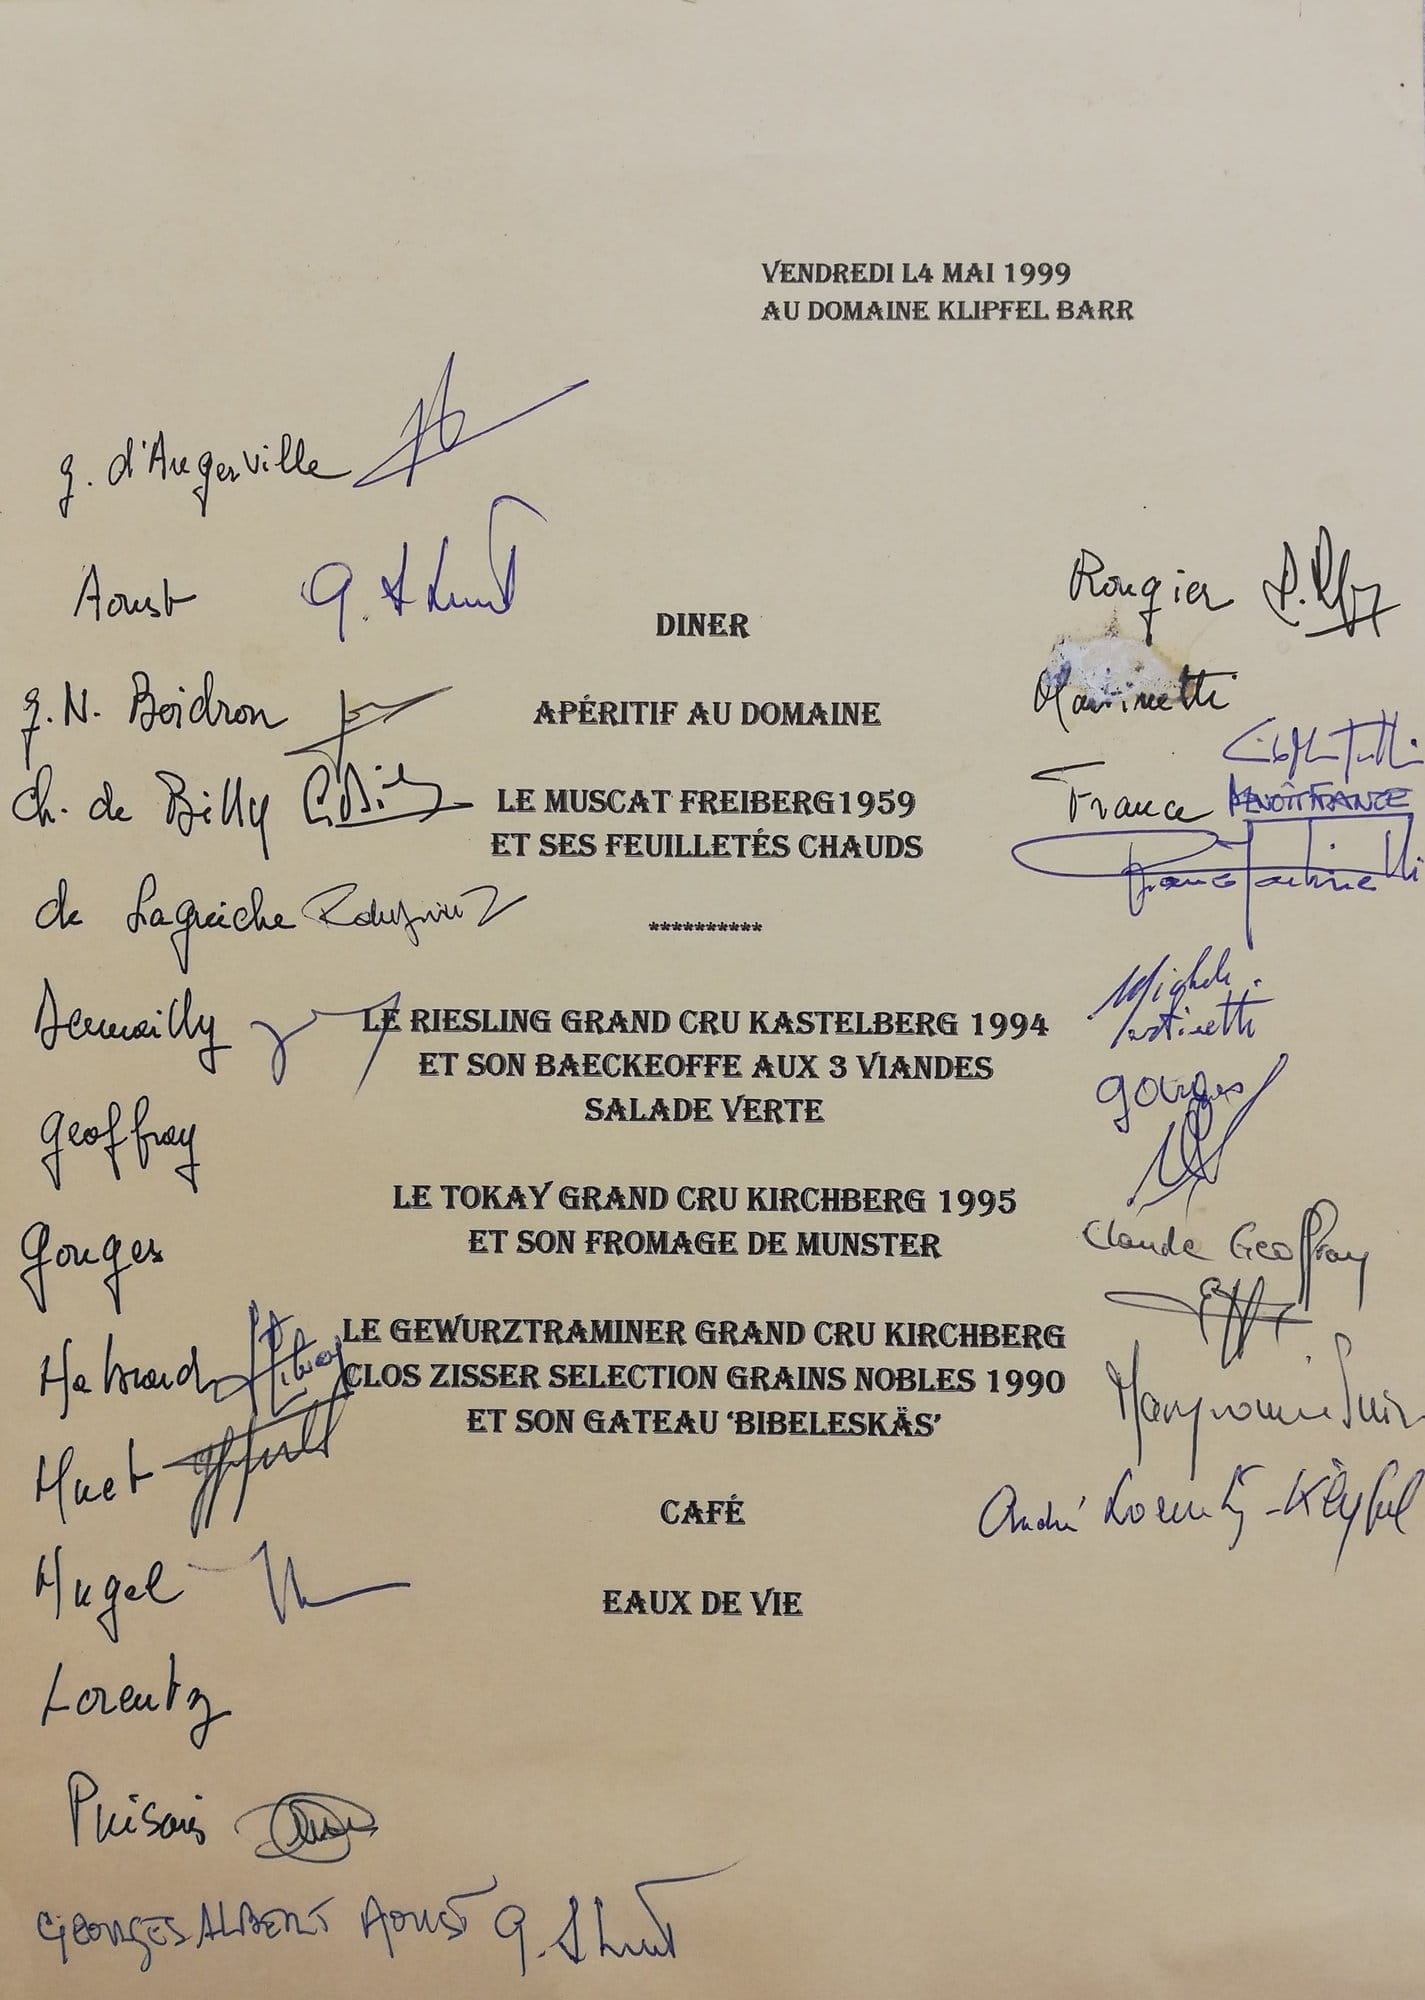 VENDREDI L4 MAI 1999
AU DOMAINE KLIPFEL BARR
g. d'Angerville
Aoust
Rougier
DINER
g. N. Boidron
APÉRITIF AU DOMAINE
Martinetti
Ch. de Billy
LE MUSCAT FREIBERG1959
France BENOÎT FRANCE
ET SES FEUILLETÉS CHAUDS
Franco Martinetti
de Lagreiche
**********
Michele
Martinetti
Demailly
LE RIESLING GRAND CRU KASTELBERG 1994
ET SON BAECKEOFFE AUX 3 VIANDES
Gouges
SALADE VERTE
Geoffray
LE TOKAY GRAND CRU KIRCHBERG 1995
ET SON FROMAGE DE MUNSTER
Claude Geoffray
Gouges
LE GEWURZTRAMINER GRAND CRU KIRCHBERG
Hebrard
CLOS ZISSER SELECTION GRAINS NOBLES 1990
ET SON GATEAU ‘BIBELESKÄS’
Huet
CAFÉ
André Lorentz-Klipfel
Hugel
EAUX DE VIE
Lorentz
Puisais
GEORGES ALBERT AOUST